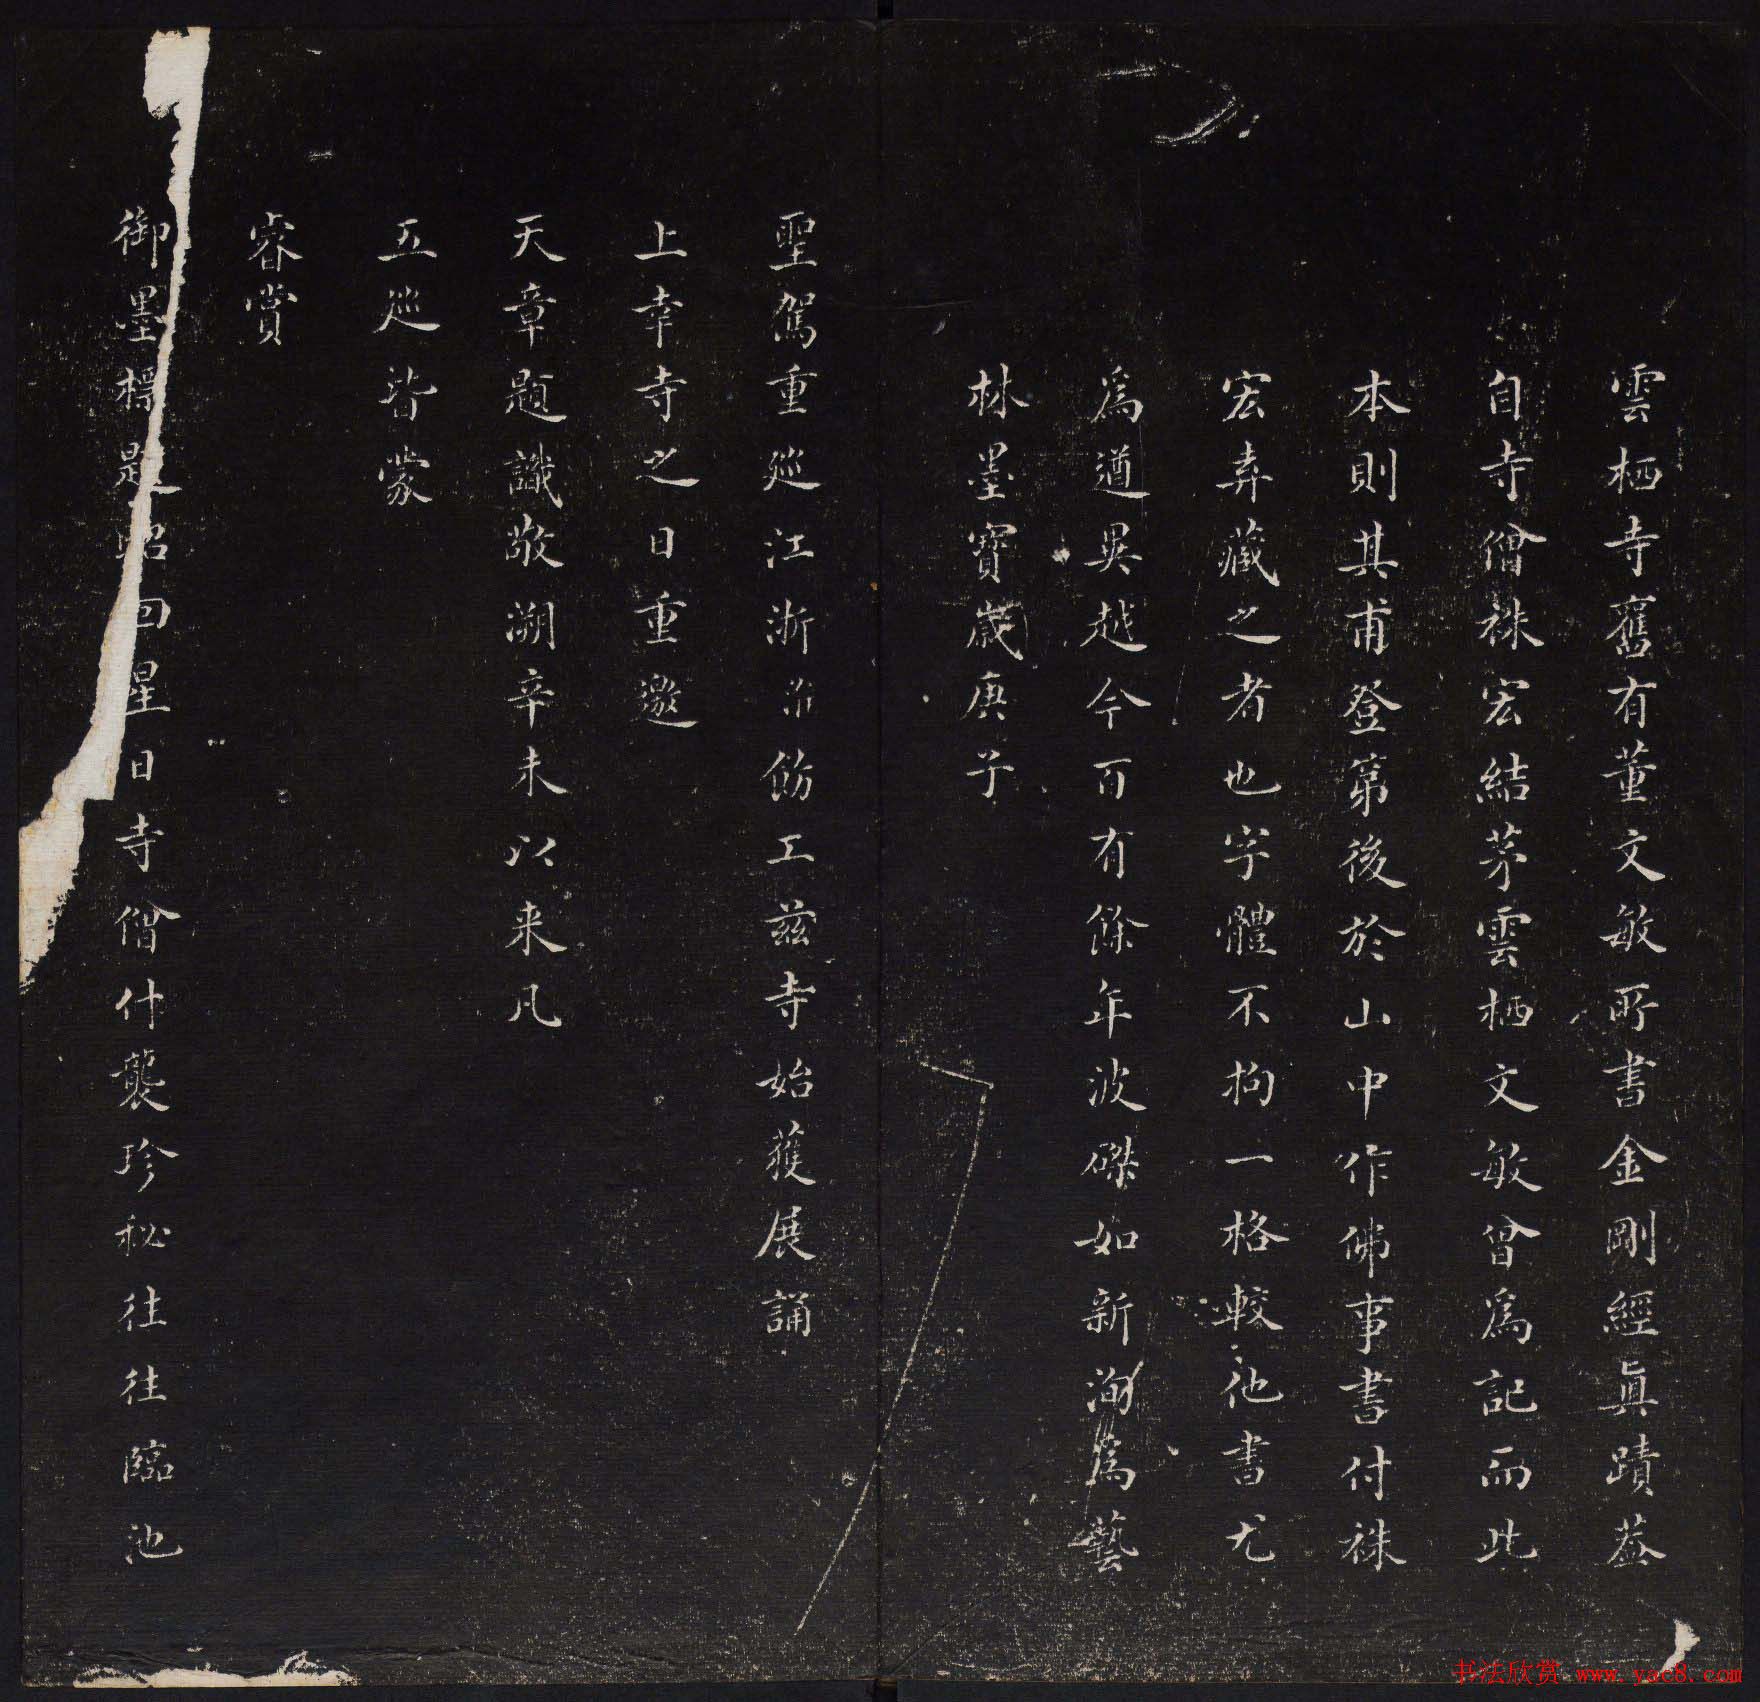 雲栖寺舊有董文敏所書金剛經眞蹟葢
自寺僧袾宏結茅雲栖文敏曾爲記而此
本則其甫登第後於山中作佛事書付袾
宏弆藏之者也字體不拘一格較他書尤
爲遒異越今百有餘年波磔如新洵爲藝
林墨寶歲庚子
聖駕重廵江浙飭工茲寺始獲展誦
上幸寺之日重邀
天章題識敬溯辛未以来凡
五廵皆蒙
睿賞
御墨標題昭回星日寺僧什襲珍秘往往臨池
书法欣赏 www.yac8.com